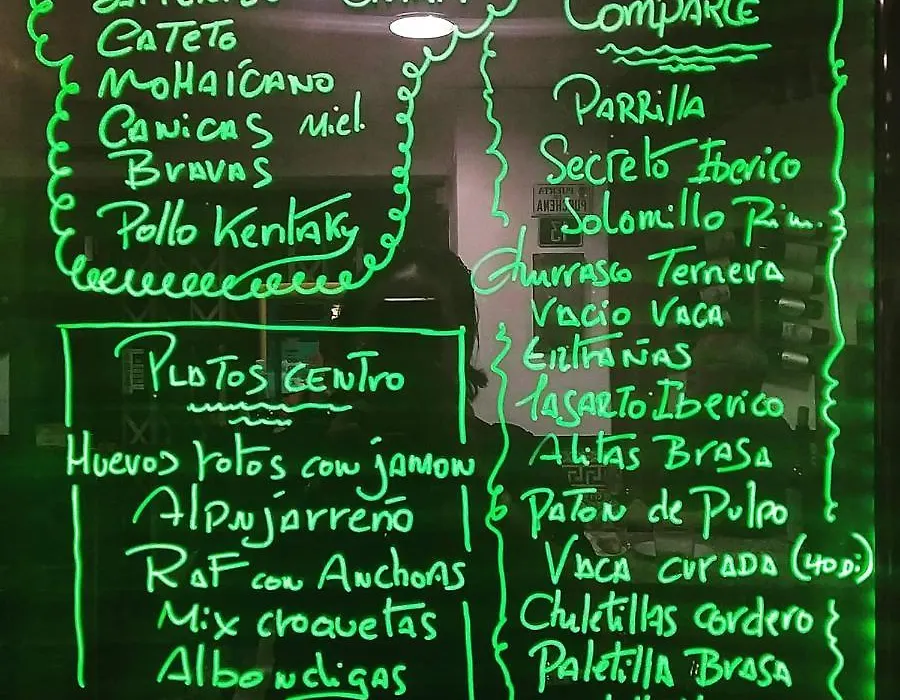 CATETO
MOHAÍCANO
CANICAS Miel.
BRAVAS
Pollo Kentaky
PLATOS CENTRO
Huevos rotos con jamon
Alpujarreño
RAF con Anchoas
Mix croquetas
Albondigas
COMPARTE
PARRILLA
Secreto Iberico
Solomillo Rim.
Churrasco Ternera
VACIO VACA
ENTRAÑAS
LAGARTO Iberico
Alitas BRASA
PATON de Pulpo
VACA CURADA (40 Di)
Chuletillas cordero
Paletilla BRASA